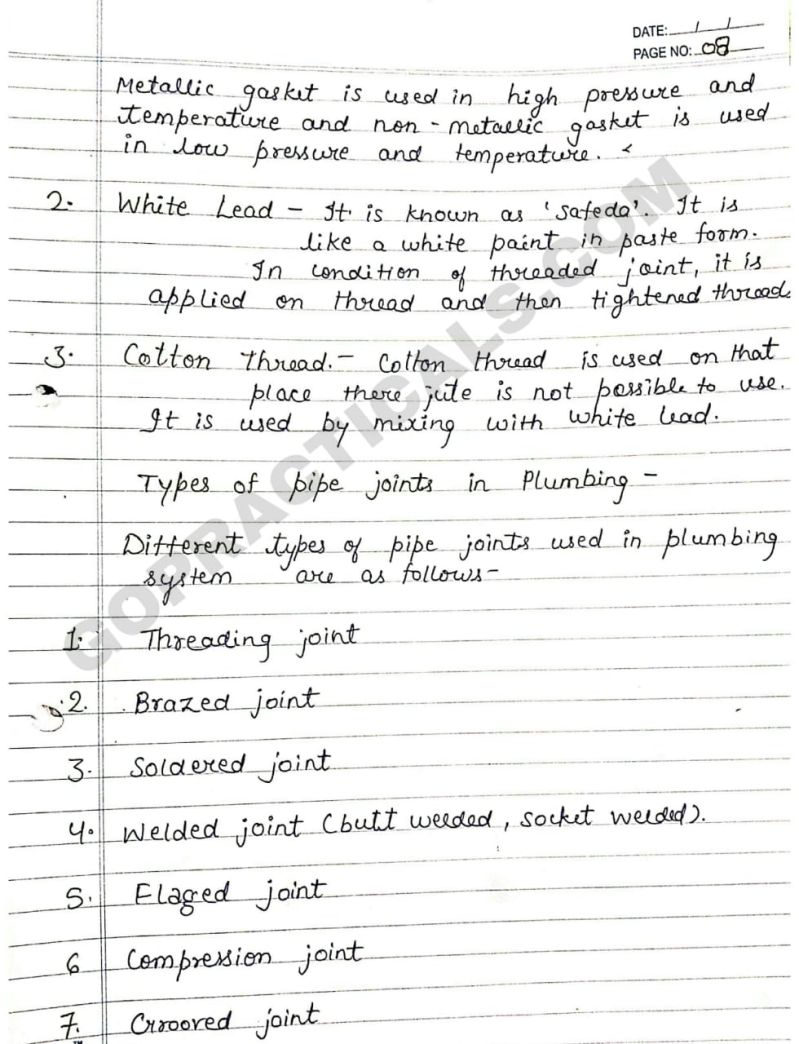 DATE: / /
PAGE NO: 08
Metallic gasket is used in high pressure and
temperature and non-metallic gasket is used
in low pressure and temperature.
2. White Lead - It is known as 'Safeda'. It is
like a white paint in paste form.
In condition of threaded joint, it is
applied on thread and then tightened thread.
3. Cotton Thread. - Cotton thread is used on that
place there jute is not possible to use.
It is used by mixing with white lead.
Types of pipe joints in Plumbing -
Different types of pipe joints used in plumbing
system are as follows -
1. Threading joint
2. Brazed joint
3. Soldered joint
4. Welded joint (butt welded, socket welded).
5. Flaged joint
6 Compression joint
7. Grooved joint
GOPRACTICALS.COM